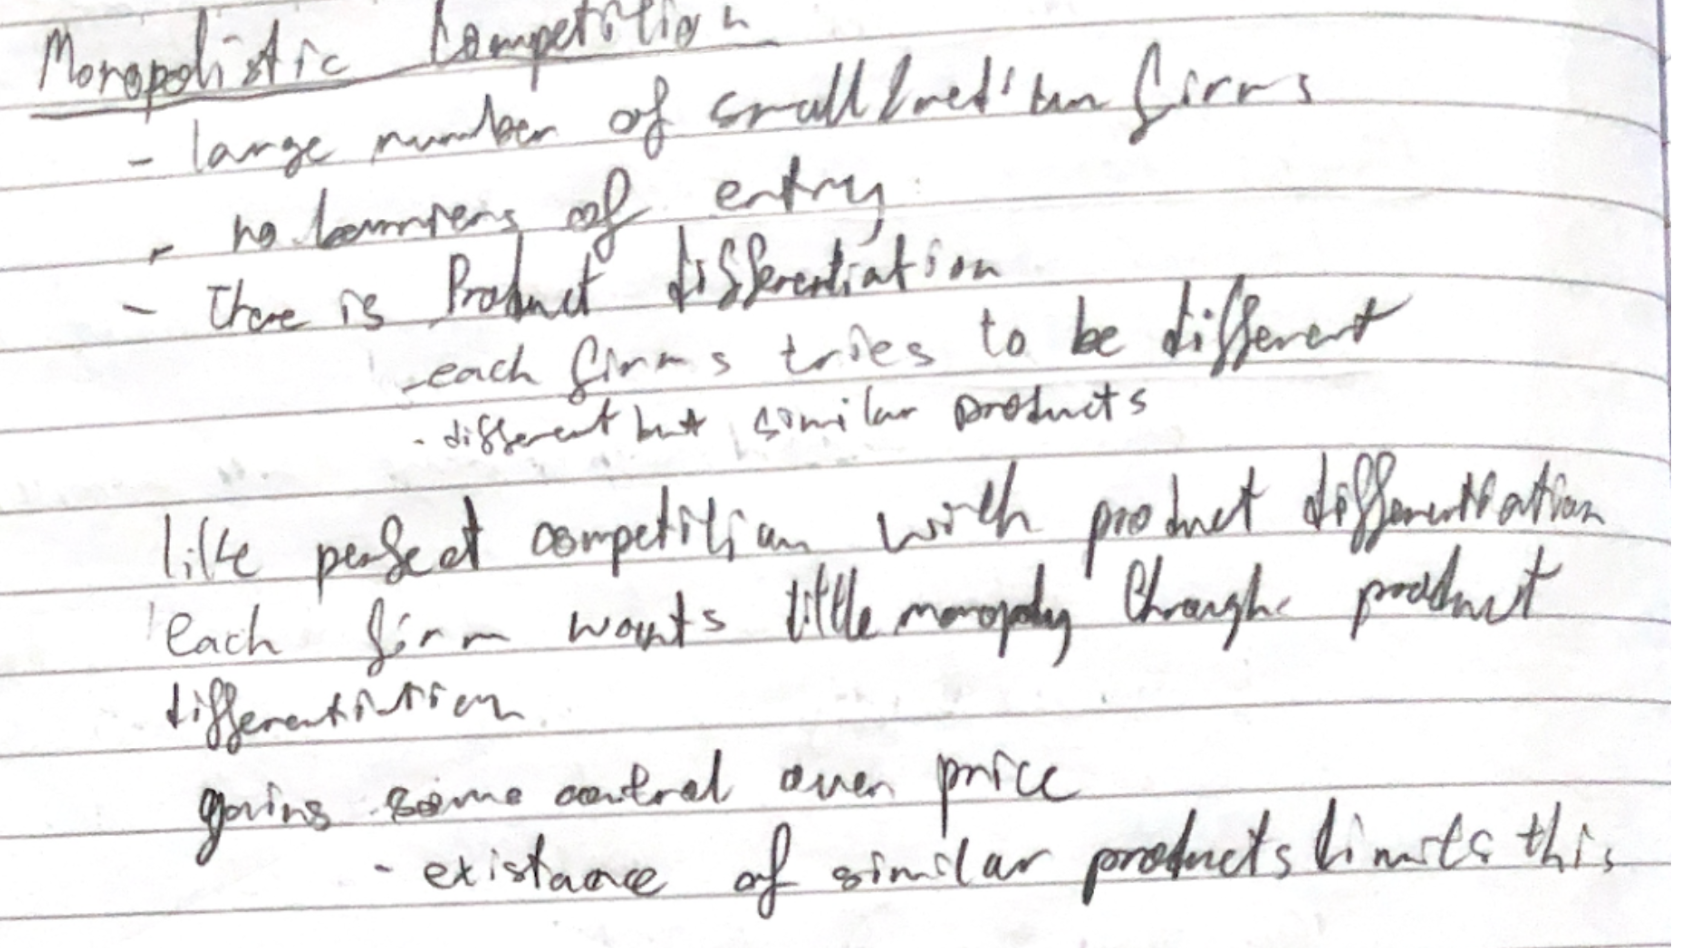 Monopolistic Competition
- large number of small/medium firms
- no barriers of entry
- there is Product differentiation
- each firms tries to be different
- different but similar products
like perfect competition with product differentiation
each firm wants little monopoly through product
differentiation
gains some control over price
- existance of similar products limits this